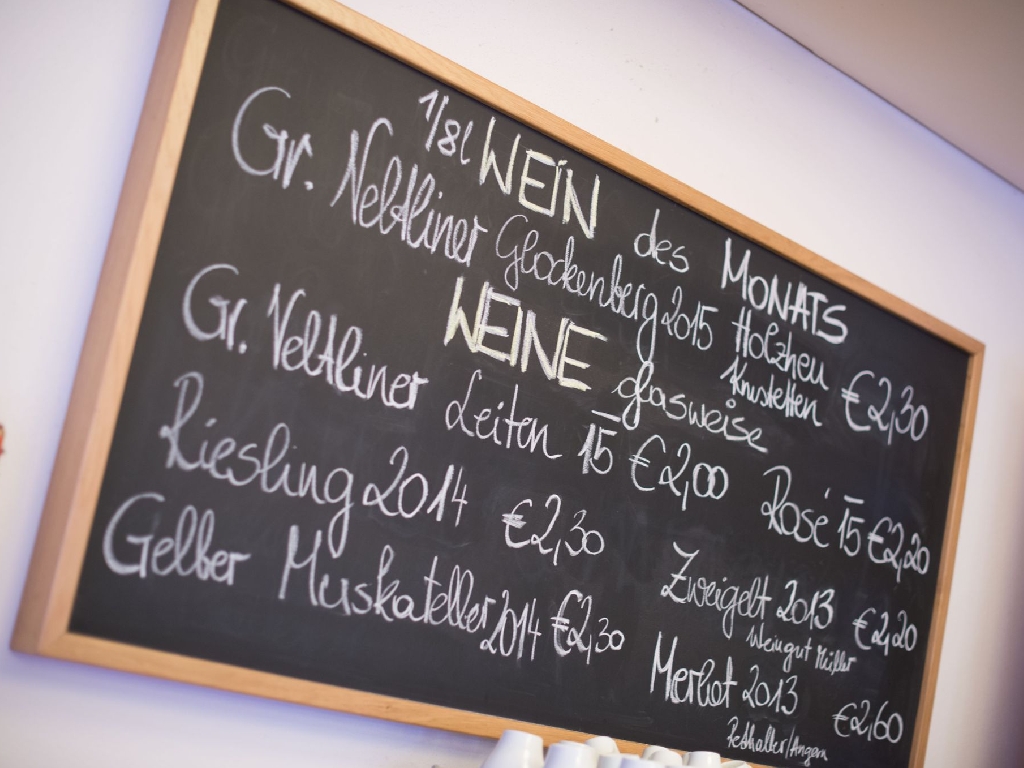 1/8l WEIN des MONATS
Gr. Veltliner Glockenberg 2015 Holzheu €2,30
Krustetten
WEINE glasweise
Gr. Veltliner Leiten 15 €2,00
Riesling 2014 €2,30
Gelber Muskateller 2014 €2,30
Rosé 15 €2,20
Zweigelt 2013 €2,20
Weingut Müller
Merlot 2013 €2,60